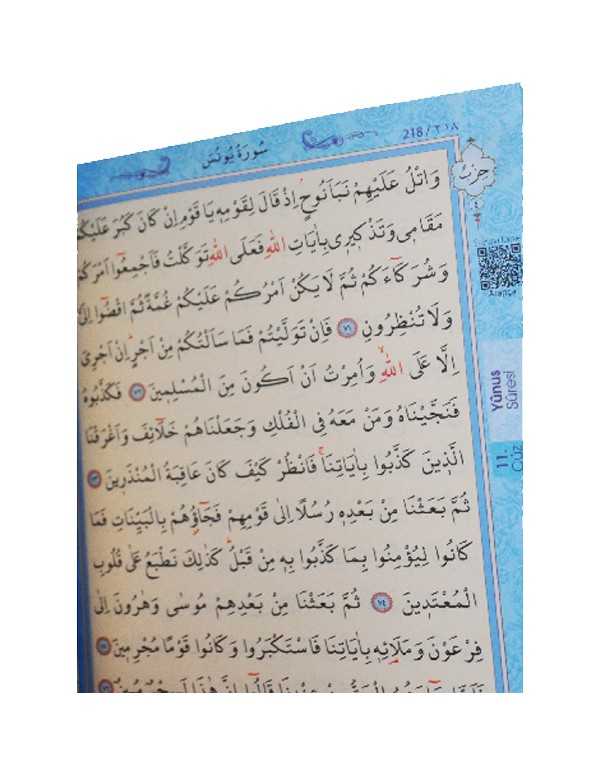 سُورَةُ يُونُسَ
218 / ٢١٨
حزب
وَاتْلُ عَلَيْهِمْ نَبَاَ نُوحٍۢ اِذْ قَالَ لِقَوْمِه۪ يَا قَوْمِ اِنْ كَانَ كَبُرَ عَلَيْكُمْ
مَقَام۪ي وَتَذْك۪ير۪ي بِاٰيَاتِ اللّٰهِ فَعَلَى اللّٰهِ تَوَكَّلْتُ فَاَجْمِعُٓوا اَمْرَكُمْ
وَشُرَكَٓاءَكُمْ ثُمَّ لَا يَكُنْ اَمْرُكُمْ عَلَيْكُمْ غُمَّةً ثُمَّ اقْضُٓوا اِلَيَّ
وَلَا تُنْظِرُونِ ٧١ فَاِنْ تَوَلَّيْتُمْ فَمَا سَاَلْتُكُمْ مِنْ اَجْرٍۜ اِنْ اَجْرِيَ
اِلَّا عَلَى اللّٰهِۙ وَاُمِرْتُ اَنْ اَكُونَ مِنَ الْمُسْلِم۪ينَ ٧٢ فَكَذَّبُوهُ
فَنَجَّيْنَاهُ وَمَنْ مَعَهُ فِي الْفُلْكِ وَجَعَلْنَاهُمْ خَلَٓائِفَ وَاَغْرَقْنَا
الَّذ۪ينَ كَذَّبُوا بِاٰيَاتِنَاۚ فَانْظُرْ كَيْفَ كَانَ عَاقِبَةُ الْمُنْذَر۪ينَ ٧٣
ثُمَّ بَعَثْنَا مِنْ بَعْدِه۪ رُسُلًا اِلٰى قَوْمِهِمْ فَجَٓاؤُ۫هُمْ بِالْبَيِّنَاتِ فَمَا
كَانُوا لِيُؤْمِنُوا بِمَا كَذَّبُوا بِه۪ مِنْ قَبْلُۜ كَذٰلِكَ نَطْبَعُ عَلٰى قُلُوبِ
الْمُعْتَد۪ينَ ٧٤ ثُمَّ بَعَثْنَا مِنْ بَعْدِهِمْ مُوسٰى وَهٰرُونَ اِلٰى
فِرْعَوْنَ وَمَلَا۬ئِه۪ بِاٰيَاتِنَا فَاسْتَكْبَرُوا وَكَانُوا قَوْمًا مُجْرِم۪ينَ ٧٥
Yûnus
Sûresi
11.
Cüz